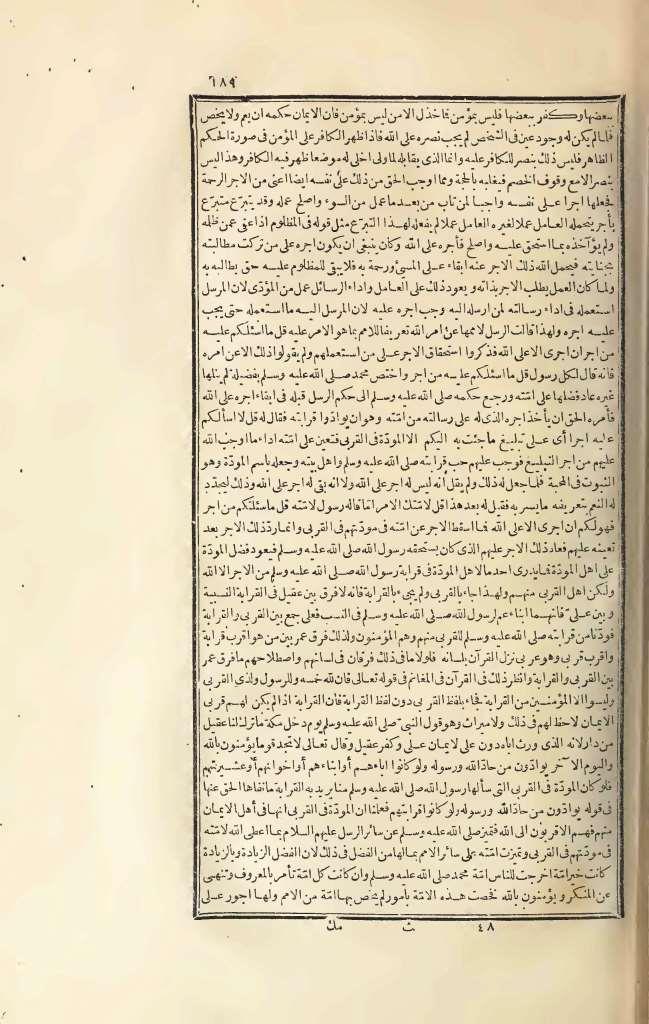 ١٨٩
ببعضها وكفر ببعضها فليس بمؤمن فما خذل الا من ليس بمؤمن فان الايمان حكمه ان يعم ولا يخص
فلما لم يكن له وجود عين في الشخص لم يجب نصره على الله فاذا ظهر الكافر على المؤمن في صورة الحكم
الظاهر فليس ذلك بنصر للكافر عليه وانما الذي يقابله لما ولى اخلى له موضعا ظهر فيه الكافر وهذا ليس
بنصر الا مع وقوف الخصم فيغلبه بالحجة ومما اوجب الحق من ذلك على نفسه ايضا اعني من الاجر الرحمة
فجعلها اجرا على نفسه واجبا لمن تاب من بعد ما عمل من السوء واصلح عمله وقد يتبرع متبرع
بأجر يتحمله العامل عمل لغيره العامل عملا لم يفعله لهذا المتبرع مثل قوله في المظلوم اذا عفى عمن ظلمه
ولم يؤاخذه بما استحق عليه واصلح فأجره على الله وكان ينبغي ان يكون اجره على من تركت مطالبته
بجنايته فيحمل الله ذلك الاجر عنه ابقاء على المسئ ورحمة به فلا يبقى للمظلوم عليه حق يطالبه به
ولما كان العمل يطلب الاجر بذاته ويعود ذلك على العامل واداء الرسائل عمل من المؤدي لان المرسل
استعمله في اداء رسالته لمن ارسله اليه وجب اجره عليه لان المرسل اليه ما استعمله حتى يجب
عليه اجره ولهذا قالت الرسل لاممها عن امر الله تعريفا للامم بما هو الامر عليه قل ما اسئلكم عليه
من اجر ان اجري الا على الله فذكروا استحقاق الاجر على من استعملهم ولم يقولوا ذلك الا عن امره
فانه قال لكل رسول قل ما اسئلكم عليه من اجر واختص محمد صلى الله عليه وسلم بفضيلة لم ينلها
غيره عاد فضلها على امته ورجع حكمه صلى الله عليه وسلم الى حكم الرسل قبله في ابقاء اجره على الله
فأمره الحق ان يأخذ اجره الذي له على رسالته من امته وهو ان يوادوا قرابته فقال له قل لا اسألكم
عليه اجرا أي على تبليغ ما جئت به اليكم الا المودة في القربى فتعين على امته اداء ما اوجب الله
عليهم من اجر التبليغ فوجب عليهم حب قرابته صلى الله عليه وسلم واهل بيته وجعله باسم المودة وهو
الثبوت في المحبة فلما جعل له ذلك ولم يقل انه ليس له اجر على الله ولا انه بقي له اجر على الله وذلك ليجدد
له النعم بتعريفه ما يسر به فقيل له بعد هذا قل لامتك الامر ما قاله رسول لامته قل ما سئلتكم من اجر
فهو لكم ان اجري الا على الله فما اسقط الاجر عن امته في مودتهم في القربى وانما رد ذلك الاجر بعد
تعينه عليهم فعاد ذلك الاجر عليهم الذي كان يستحقه رسول الله صلى الله عليه وسلم فيعود فضل المودة
على اهل المودة فما يدرى احد ما لاهل المودة في قرابة رسول الله صلى الله عليه وسلم من الاجر الا الله
ولكن اهل القربى منهم ولهذا جاء بالقربى ولم يجيء بالقرابة فانه لا فرق بين عقيل في القرابة النسبية
وبين علي فانهما ابناء عم لرسول الله صلى الله عليه وسلم في النسب فعلي جمع بين القربى والقرابة
فودنا من قرابته صلى الله عليه وسلم للقربى منهم وهم المؤمنون ولذلك فرق عمر بين من هو اقرب قرابة
واقرب قربى وهو عربي نزل القرآن بلسانه فلولا ما في ذلك فرقان في لسانهم واصطلاحهم ما فرق عمر
بين القربى والقرابة وانظر ذلك في القرآن في المغانم في قوله تعالى فان لله خمسه وللرسول ولذي القربى
وليسوا الا المؤمنين من القرابة فجاء بلفظ القربى دون لفظ القرابة فان القرابة اذا لم يكن لهم قربى
الايمان لا حظ لهم في ذلك ولا ميراث وهو قول النبي صلى الله عليه وسلم يوم دخل مكة ما ترك لنا عقيل
من دار لانه الذي ورث اباه دون علي لايمان علي وكفر عقيل وقال تعالى لا تجد قوما يؤمنون بالله
واليوم الآخر يوادون من حاد الله ورسوله ولو كانوا اباءهم أو ابناءهم أو اخوانهم أو عشيرتهم
فلو كان المودة في القربى التي سألها رسول الله صلى الله عليه وسلم منا يريد به القرابة ما نفاها الحق عنها
في قوله يوادون من حاد الله ورسوله ولو كانوا قرابتهم فعلمنا ان المودة في القربى انها في أهل الايمان
منهم فهم الاقربون الى الله فتميز صلى الله عليه وسلم عن سائر الرسل عليهم السلام بما اعطى الله لامته
في مودتهم في القربى وتميزت امته على سائر الامم بما لها من الفضل في ذلك لان الفضل الزيادة وبالزيادة
كانت خير امة اخرجت للناس امة محمد صلى الله عليه وسلم وان كانت كل امة تأمر بالمعروف وتنهى
عن المنكر ويؤمنون بالله فخصت هذه الامة بأمور لم يخص بها امة من الامم ولها اجور على
٤٨ ث مك